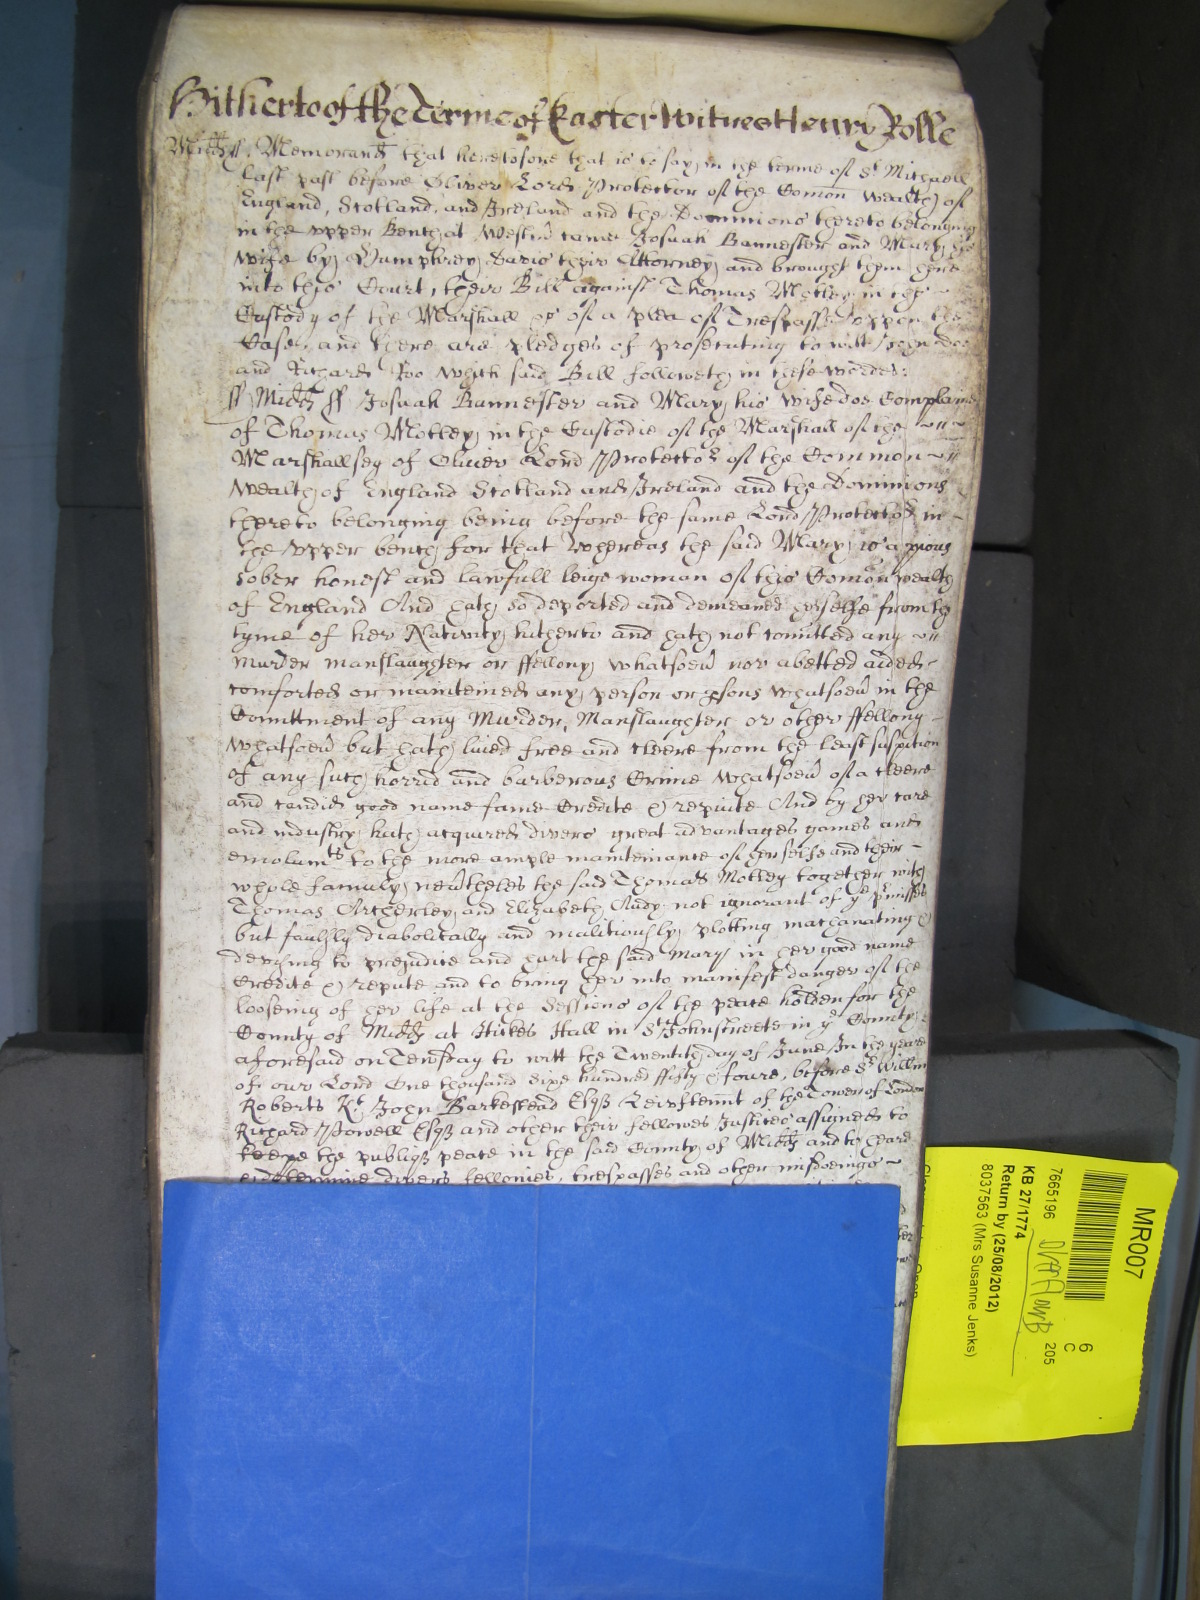 Hitherto of the Terme of Easter Witnes Henry Rolle
Midd ss. Memorand that heretofore that is to say in the terme of St Michaell
last past before Oliver Lord Protector of the Comon wealth of
England, Scotland, and Ireland and the Dominions thereto belonging
in the upper Bench at Westm came Josuah Bannester and Mary his
wife by Humphrey Davis their Attorney and brought them here
into this Court, their Bill against Thomas Motley in the
Custody of the Marshall &c of a plea of Trespasse uppon the
Case, and there are pledges of prosecuting to witt John Doe
and Richard Roo which said Bill followeth in these wordes:
ss Midd ss Josuah Bannester and Mary his wife doe Complaine
of Thomas Motley in the Custodie of the Marshall of the
Marshallsey of Oliver Lord Protector of the Common
wealth of England Scotland and Ireland and the Dominions
thereto belonging being before the same Lord Protector in
the upper bench for that whereas the said Mary is a pious
sober honest and lawfull leige woman of this Comon wealth
of England And hath so deported and demeaned herselfe from the
tyme of her Nativity hitherto and hath not comitted any
murder manslaughter or ffellony whatsoev nor abetted aided
comforted or mainteined any person or psons whatsoev in the
Comittment of any Murder, Manslaughter or other ffellony
whatsoev but hath lived free and cleere from the least suspition
of any such horrid and barberous Crime whatsoev of a cleere
and candid good name fame Credite & repute And by her care
and industry hath acquired divers great advantages games and
emolumts to the more ample maintenance of her selfe and their
whole family nevtheles the said Thomas Motley together with
Thomas Atherley and Elizabeth Audy not ignorant of ye pmisses
but faulsly diabolically and malitiously plotting machanating &
devising to prejudice and hurt the said Mary in her good name
Credite & repute and to bring her into manifest danger of the
looseing of her life at the Sessions of the peace holden for the
County of Midd at Hickes Hall in St Johnstreete in ye County
aforesaid on Tewsday to witt the Twentith day of June In the yeare
of our Lord One thousand sixe hundred ffifty & foure, before Sr Willm
Roberts Kt John Barkestead Esqr Leivftennt of the Tower of London
Richard Powell Esqr and other their fellowes Justices assigned to
keepe the publiq peace in the said County of Midd and to heare
and determine divers fellonies, trespasses and other misdoeings
MR007
7665196
KB 27/1774
Return by (25/08/2012)
8037563 (Mrs Susanne Jenks)
6
C
205